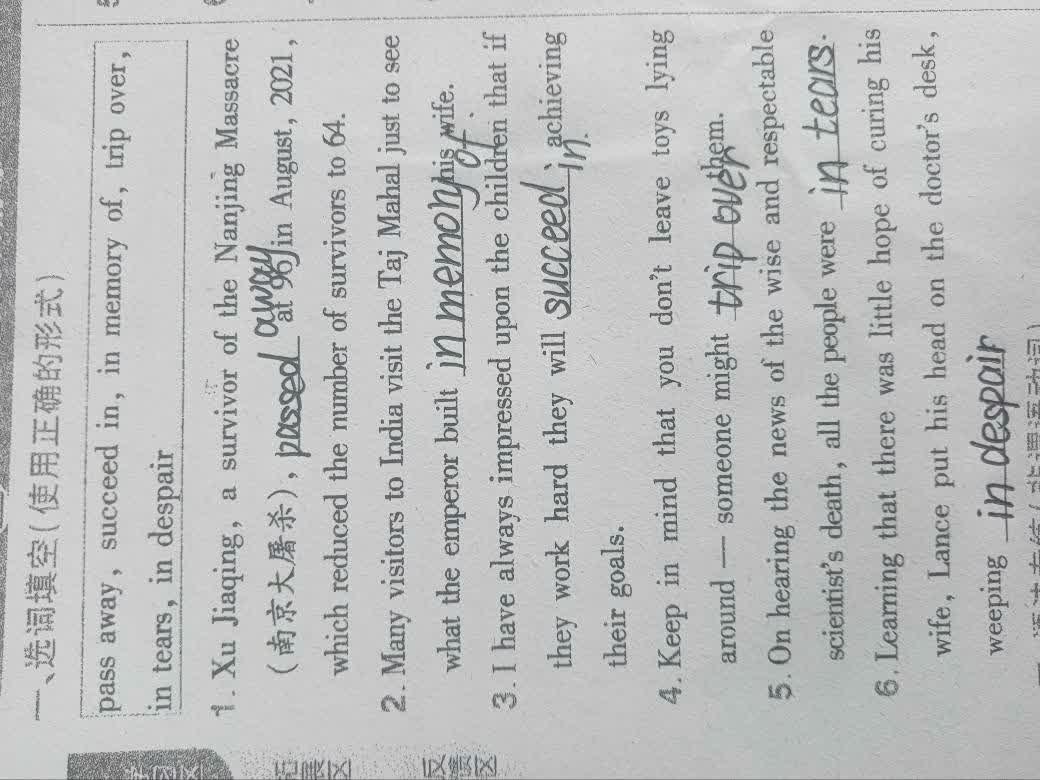 一、选词填空(使用正确的形式)
pass away, succeed in, in memory of, trip over,
in tears, in despair
1. Xu Jiaqing, a survivor of the Nanjing Massacre
(南京大屠杀), passed away at 96 in August, 2021,
which reduced the number of survivors to 64.
2. Many visitors to India visit the Taj Mahal just to see
what the emperor built in memory of his wife.
3. I have always impressed upon the children that if
they work hard they will succeed in achieving
their goals.
4. Keep in mind that you don't leave toys lying
around — someone might trip over them.
5. On hearing the news of the wise and respectable
scientist's death, all the people were in tears.
6. Learning that there was little hope of curing his
wife, Lance put his head on the doctor's desk,
weeping in despair